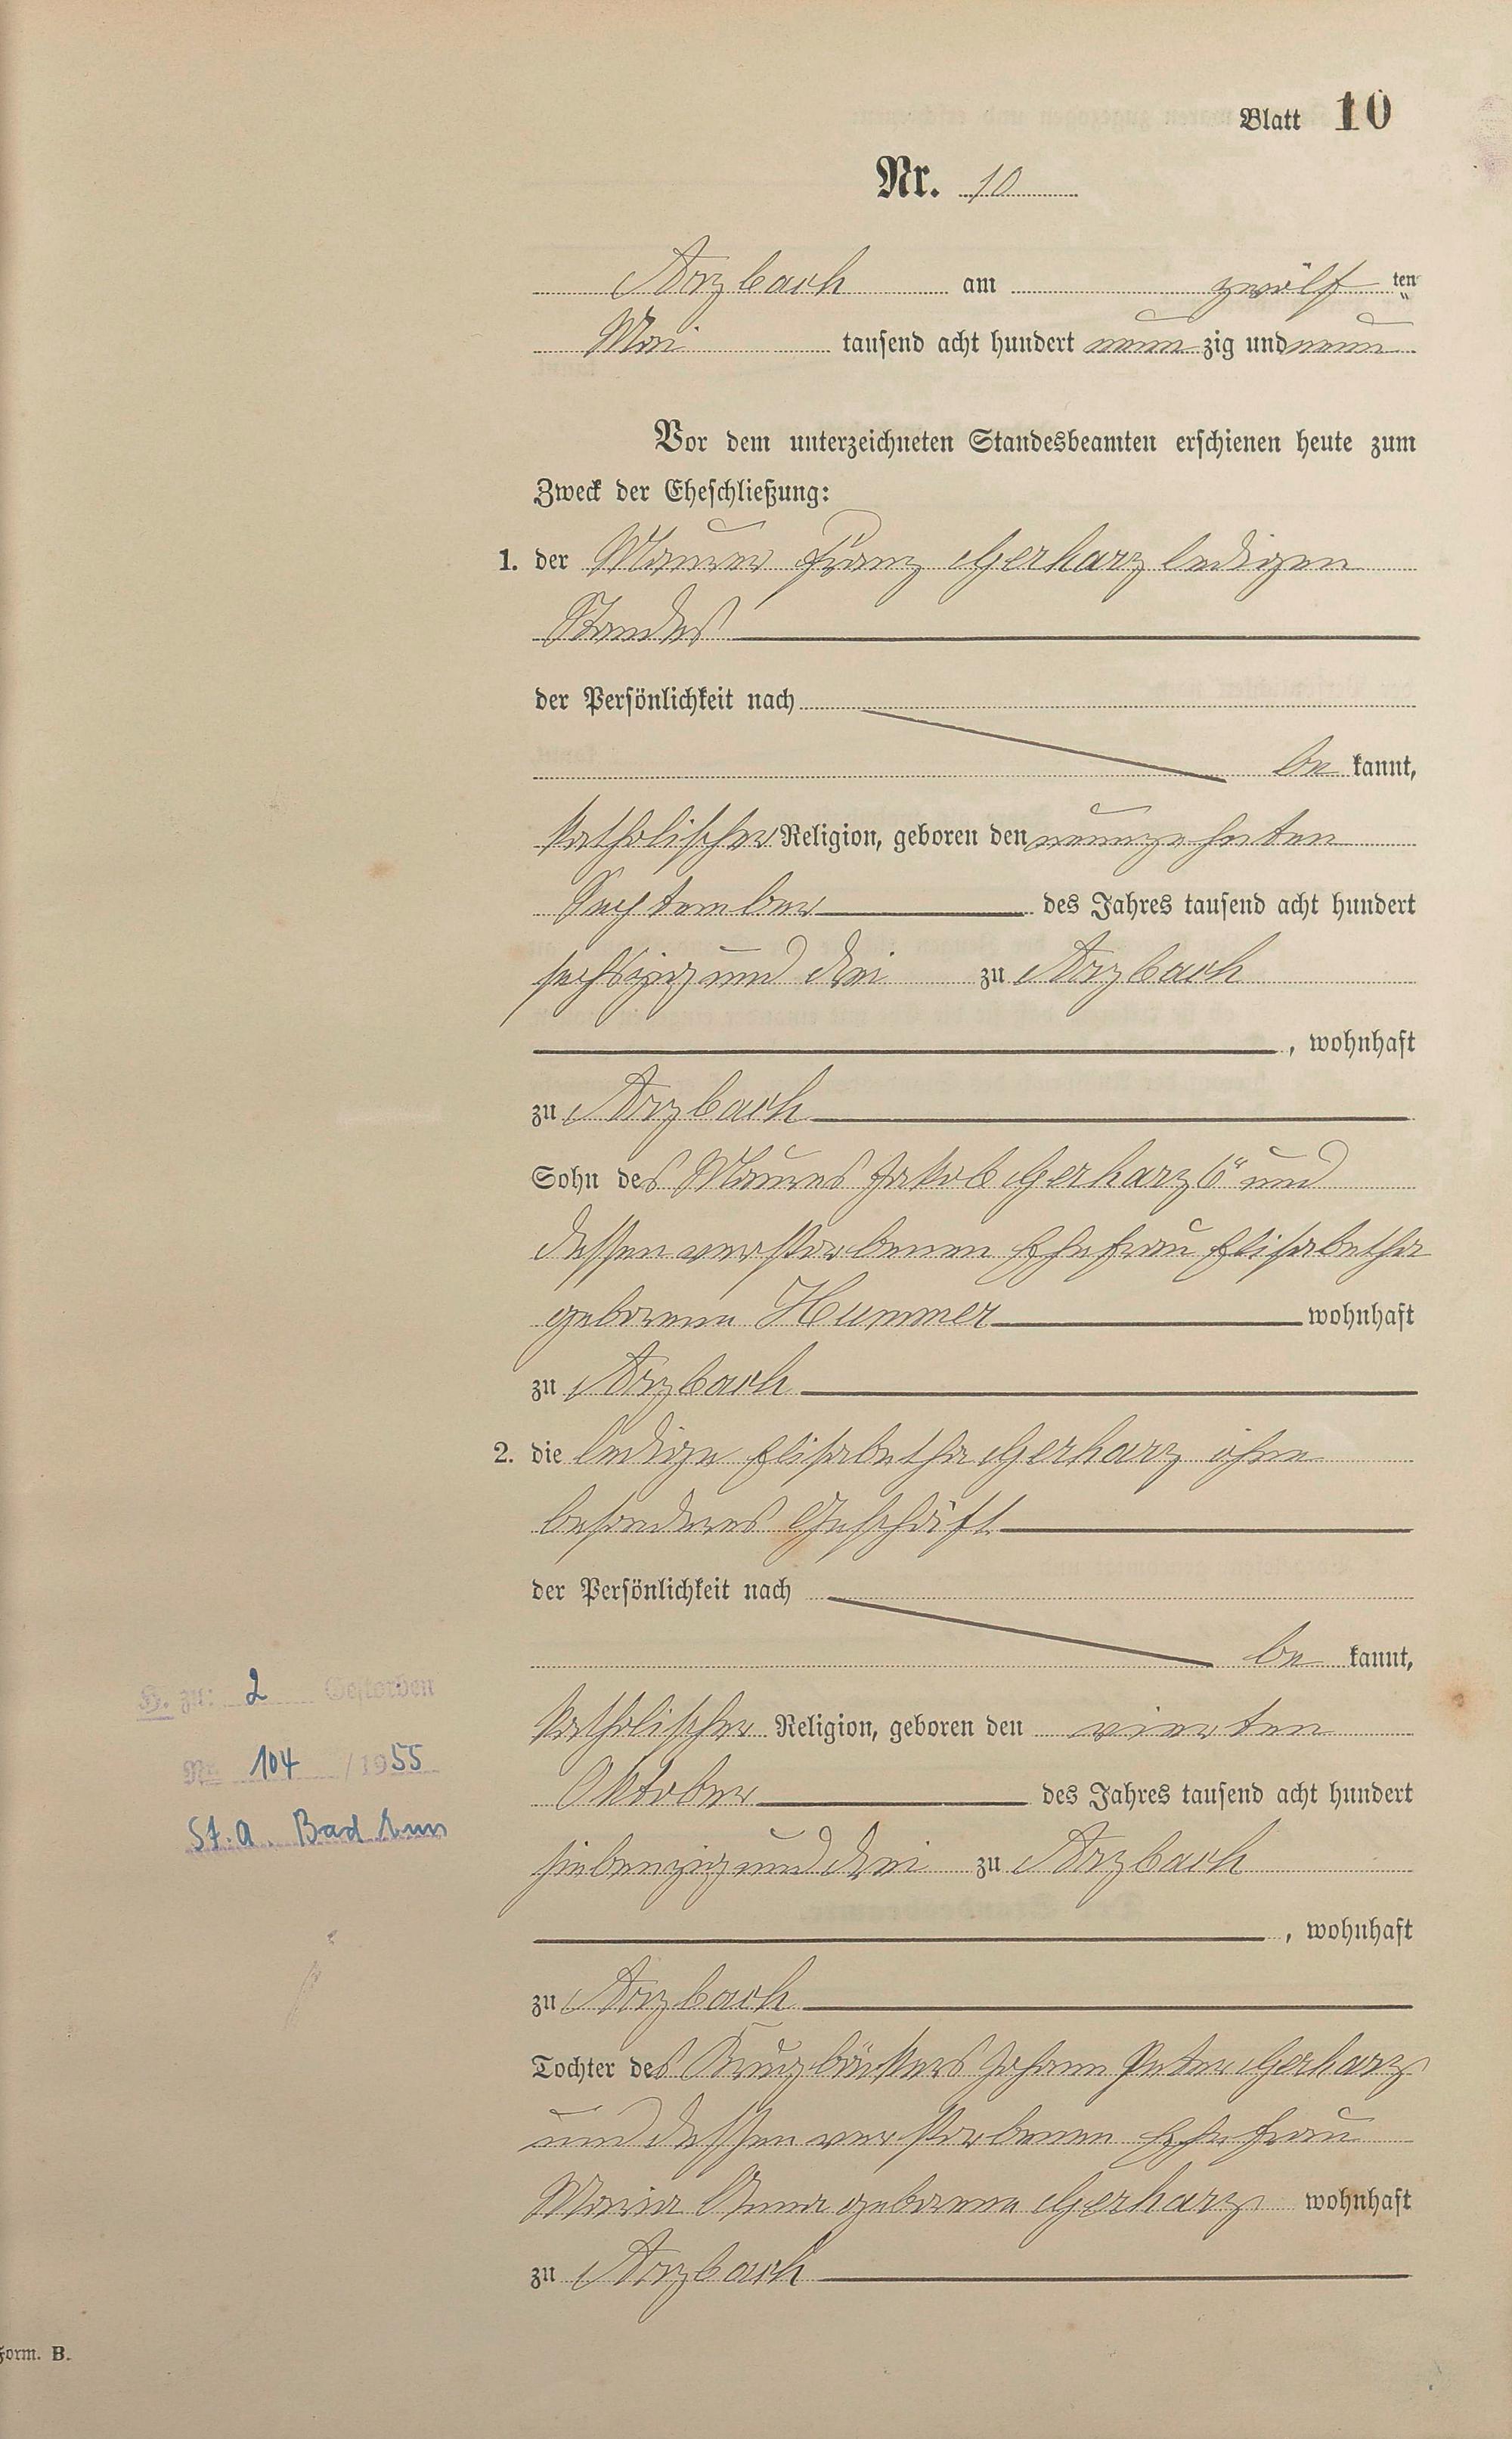 Blatt 10
Nr. 10
Arzbach am zwölf ten
Mai tausend acht hundert neun zig und neun
Vor dem unterzeichneten Standesbeamten erschienen heute zum
Zweck der Eheschließung:
1. der Maurer Franz Gerharz ledigen
Standes
der Persönlichkeit nach
be kannt,
katholischer Religion, geboren den neunzehnten
September des Jahres tausend acht hundert
sechszig und drei zu Arzbach
, wohnhaft
zu Arzbach
Sohn des Maurers Jakob Gerharz 6" und
dessen verstorbenen Ehefrau Elisabetha
geborene Hummer wohnhaft
zu Arzbach
2. die ledige Elisabetha Gerharz ohne
besonderes Geschäft
der Persönlichkeit nach
be kannt,
katholischer Religion, geboren den vierten
Oktober des Jahres tausend acht hundert
siebenzig und drei zu Arzbach
, wohnhaft
zu Arzbach
Tochter des Krugbäckers Johann Peter Gerharz
und dessen verstorbenen Ehefrau
Maria Anna geborene Gerharz wohnhaft
zu Arzbach
H. zu: 2 Gestorben
Nr. 104 / 1955
St.A. Bad Ems
Form. B.